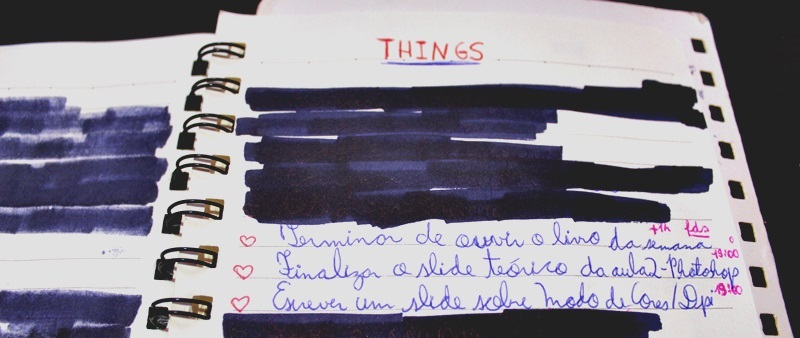 THINGS
+1h fds
Terminar de ouvir o livro da semana
19:00
Finalizar o slide teórico da aula2-Photoshop
19:00
Escrever um slide sobre Modo de Cores/Dpi